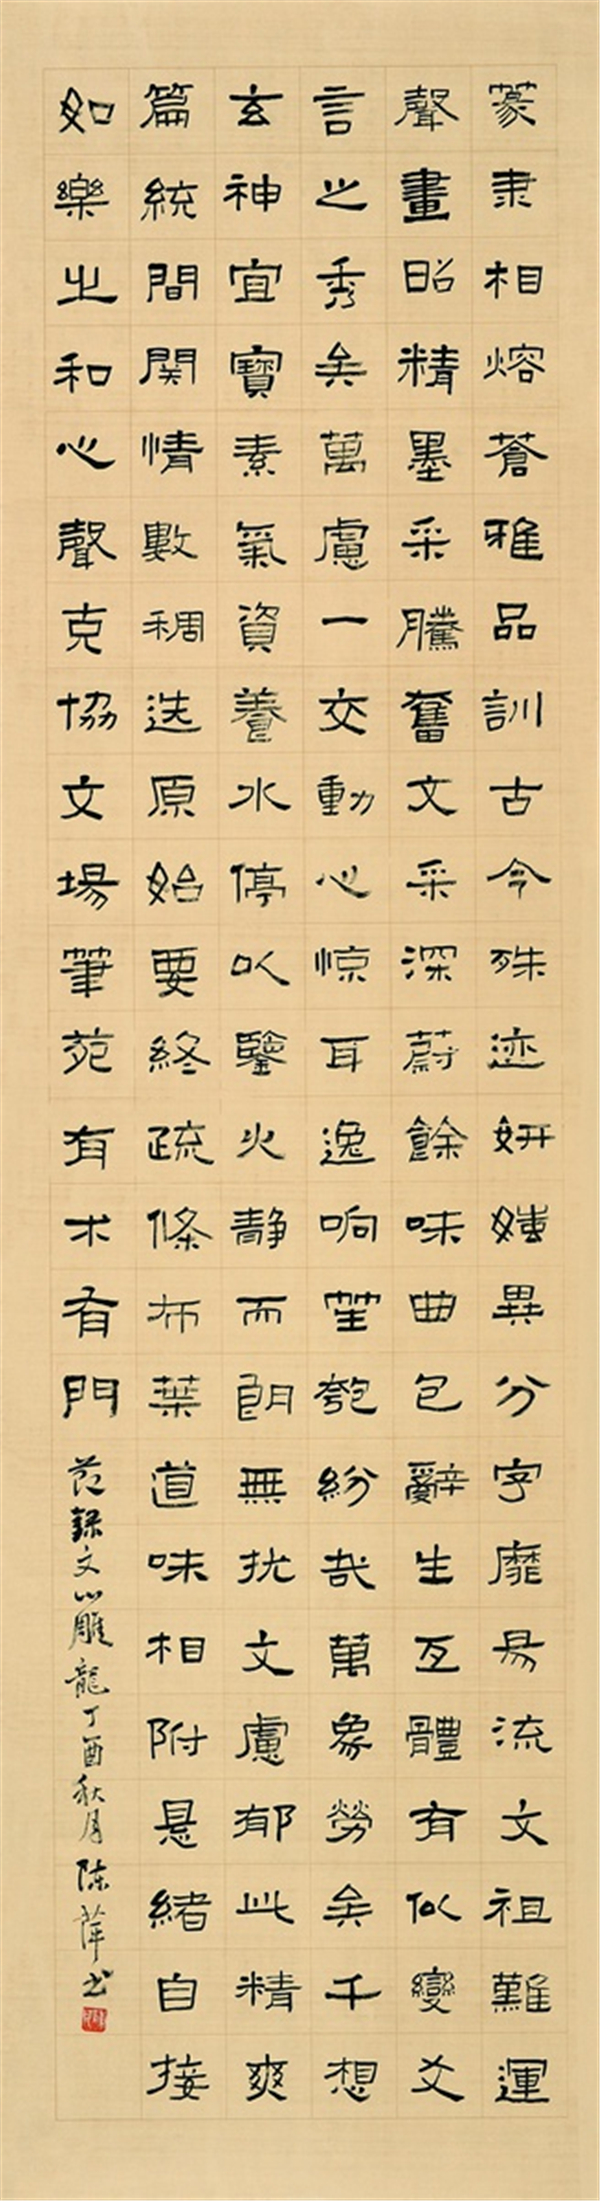 篆隶相熔蒼雅品訓古今殊迹妍媸異分字靡易流文祖難運
聲畫昭精墨采騰奮文采深蔚餘味曲包辭生互體有似變爻
言之秀矣萬慮一交動心惊耳逸响笙匏紛哉萬象勞矣千想
玄神宜寶素氣資養水停以鑒火静而朗無扰文慮郁此精爽
篇統間關情數稠迭原始要終疏條布葉道味相附悬緒自接
如樂之和心聲克協文場筆苑有术有門
节録文心雕龍丁酉秋月陈萍书